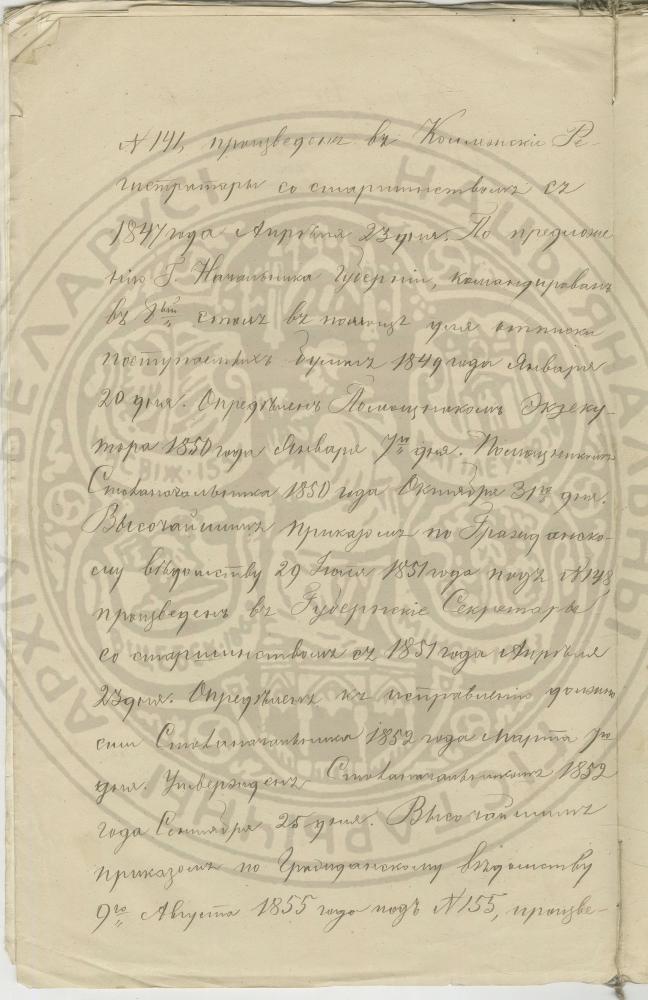 № 141, произведенъ въ Коллежскіе Ре-
гистраторы со старшинствомъ съ
1847 года Апрѣля 23 дня. По предложе
нію Г. Начальника Губерніи, командированъ
въ столъ въ помощь для отписки
поступаемыхъ бумагъ 1849 года Января
20 дня. Опредѣленъ Помощникомъ Экзеку-
тора 1850 года Января 7го дня. Помощникомъ
Столоначальника 1850 года Октября 31го дня.
Высочайшимъ приказомъ по Гражданско-
му вѣдомству 29 Іюля 1851 года подъ № 148
произведенъ въ Губернскіе Секретари
со старшинствомъ съ 1851 года Апрѣля
23 дня. Опредѣленъ къ исправленію должно
сти Столоначальника 1852 года Марта 7го
дня. Утвержденъ Столоначальникомъ 1852
года Сентября 25 дня. Высочайшимъ
приказомъ по Гражданскому вѣдомству
9го Августа 1855 года подъ № 155, произве-